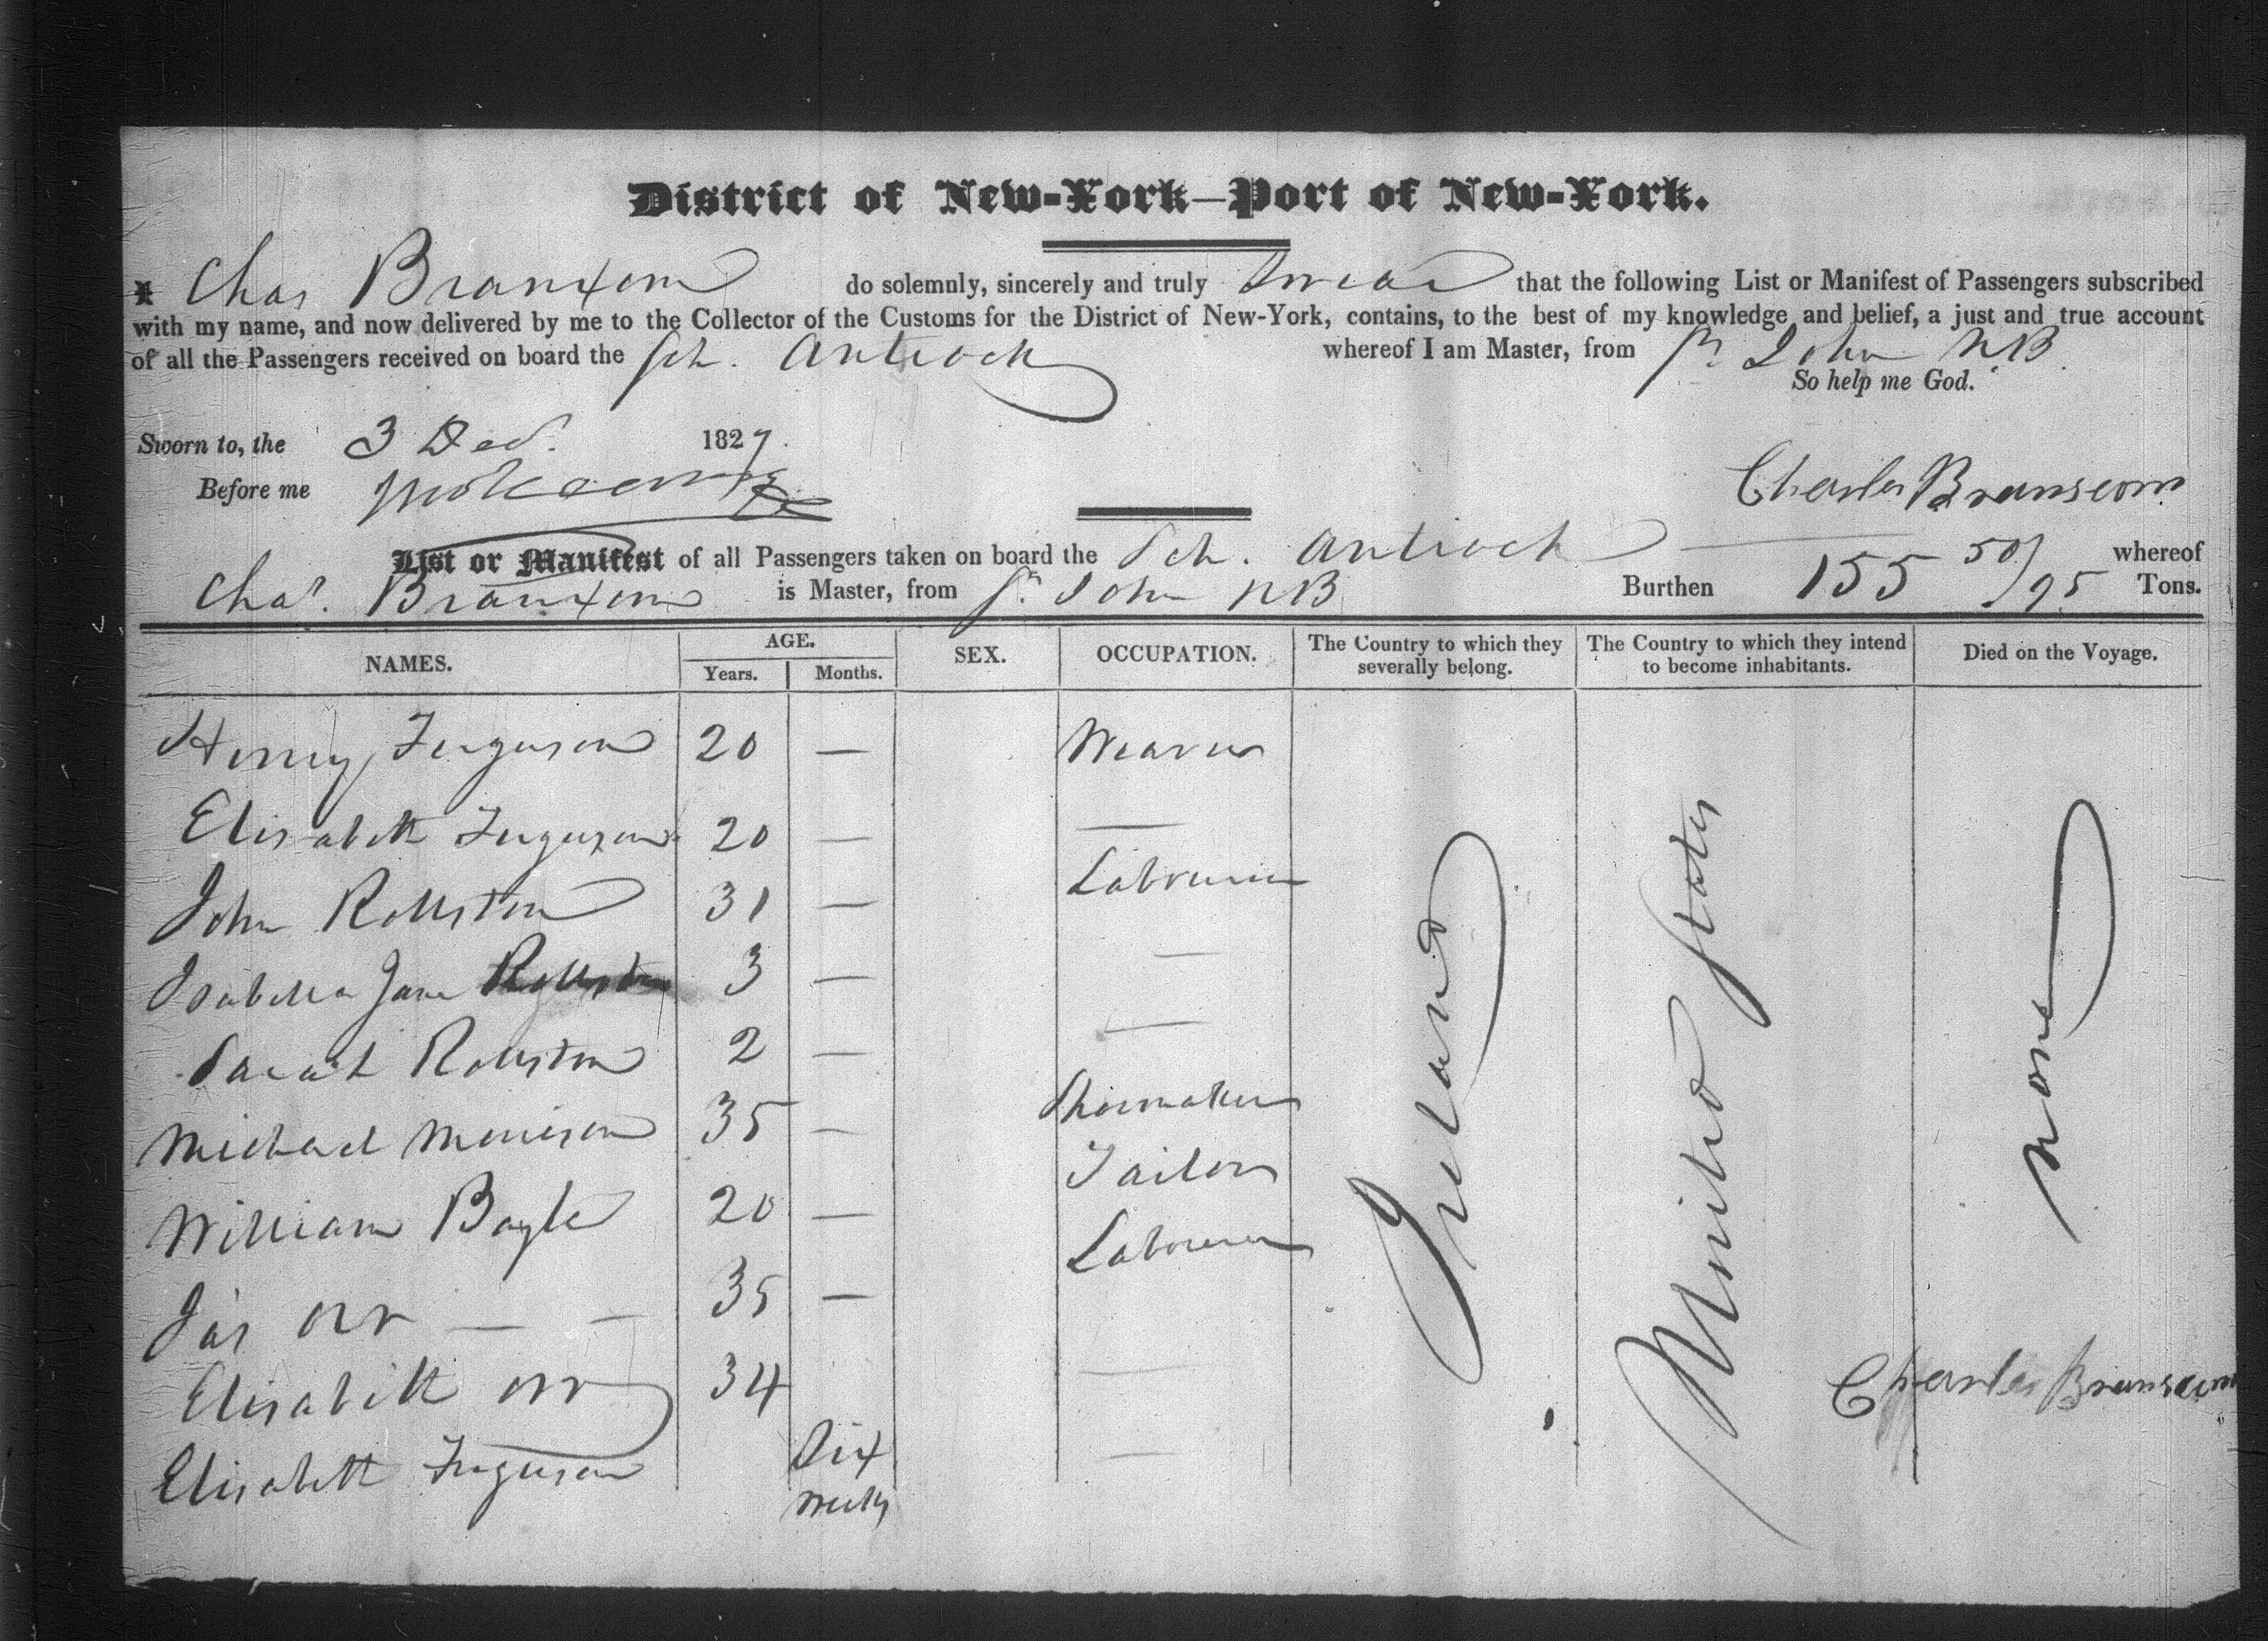 District of New-York—Port of New-York.
I Chas Branxom do solemnly, sincerely and truly Swear that the following List or Manifest of Passengers subscribed
with my name, and now delivered by me to the Collector of the Customs for the District of New-York, contains, to the best of my knowledge and belief, a just and true account
of all the Passengers received on board the Sch. Antioch whereof I am Master, from St. John NB
So help me God.
Sworn to, the 3 Dec. 1827
Before me
Charles Branscom
List or Manifest of all Passengers taken on board the Sch. Antioch whereof
Chas. Branxom is Master, from St. John NB Burthen 155 50/95 Tons.
NAMES. AGE. Years. Months. SEX. OCCUPATION. The Country to which they severally belong. The Country to which they intend to become inhabitants. Died on the Voyage.
Henry Ferguson 20 — Weaver
Elisabeth Ferguson 20 — —
John Rollston 31 — Labourer
Isabella Jane Rollston 3 — —
Sarah Rollston 2 — —
Michael Morrison 35 — Shoemaker
William Bayle 20 — Tailor
Jas Orr — — 35 — Labourer
Elisabeth Orr 34 —
Elisabeth Ferguson Six weeks —
Ireland
United States
None
Charles Branscom